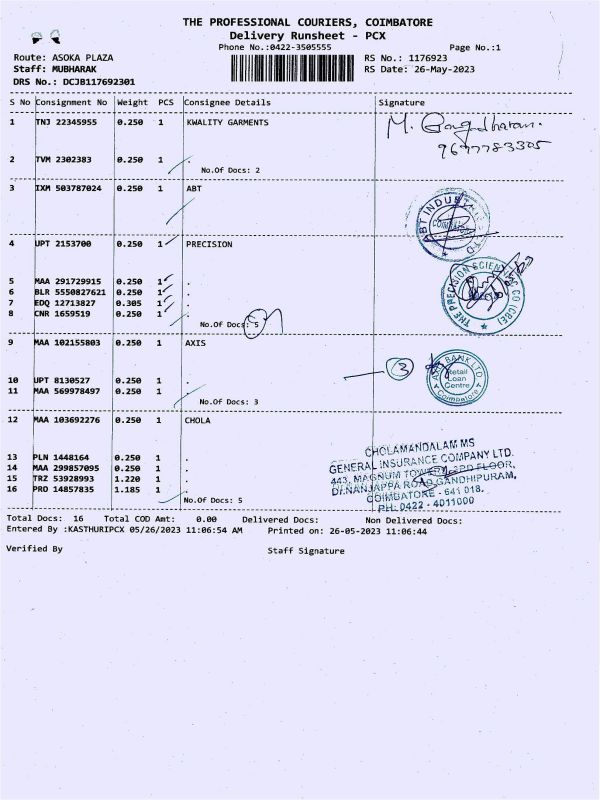 THE PROFESSIONAL COURIERS, COIMBATORE
Delivery Runsheet - PCX
Phone No.:0422-3505555 Page No.:1
Route: ASOKA PLAZA RS No.: 1176923
Staff: MUBHARAK RS Date: 26-May-2023
DRS No.: DCJB117692301
S No Consignment No Weight PCS Consignee Details Signature
1 TNJ 22345955 0.250 1 KWALITY GARMENTS
M. Gangadharan.
9697783305
2 TVM 2302383 0.250 1 .
No.Of Docs: 2
3 IXM 503787024 0.250 1 ABT
ABT INDUSTRIES LTD
COIMBATORE
4 UPT 2153700 0.250 1 PRECISION
5 MAA 291729915 0.250 1 .
6 BLR 5550827621 0.250 1 .
7 EDQ 12713827 0.305 1 .
8 CNR 1659519 0.250 1 .
No.Of Docs: 5
THE PRECISION SCIENTIFIC CO (CBE)
9 MAA 102155803 0.250 1 AXIS
3
AXIS BANK LTD.
Retail
Loan
Centre
Coimbatore
10 UPT 8130527 0.250 1 .
11 MAA 569978497 0.250 1 .
No.Of Docs: 3
12 MAA 103692276 0.250 1 CHOLA
13 PLN 1448164 0.250 1 .
14 MAA 299857095 0.250 1 .
15 TRZ 53928993 1.220 1 .
16 PRO 14857835 1.185 1 .
No.Of Docs: 5
CHOLAMANDALAM MS
GENERAL INSURANCE COMPANY LTD.
443, MAGNUM TOWERS, 2ND FLOOR,
Dr.NANJAPPA ROAD, GANDHIPURAM,
COIMBATORE - 641 018.
PH: 0422 - 4011000
Total Docs: 16 Total COD Amt: 0.00 Delivered Docs: Non Delivered Docs:
Entered By :KASTHURIPCX 05/26/2023 11:06:54 AM Printed on: 26-05-2023 11:06:44
Verified By Staff Signature